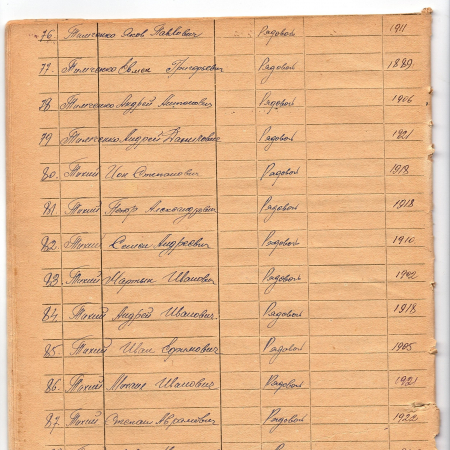 76. Тимченко Яков Павлович Рядовой 1911
77. Тимченко Семен Григорьевич Рядовой 1889
78. Тимченко Андрей Антонович Рядовой 1906
79. Тимченко Андрей Рядовой 1921
80. Тихий Степанович Рядовой 1918
81. Тихий Петр Александрович Рядовой 1918
82. Тихий Семен Андреевич Рядовой 1910
83. Тихий Мартын Иванович Рядовой 1902
84. Тихий Андрей Иванович Рядовой 1918
85. Тихий Иван Рядовой 1905
86. Тихий Иванович Рядовой 1921
87. Тихий Степан Абрамович Рядовой 1922